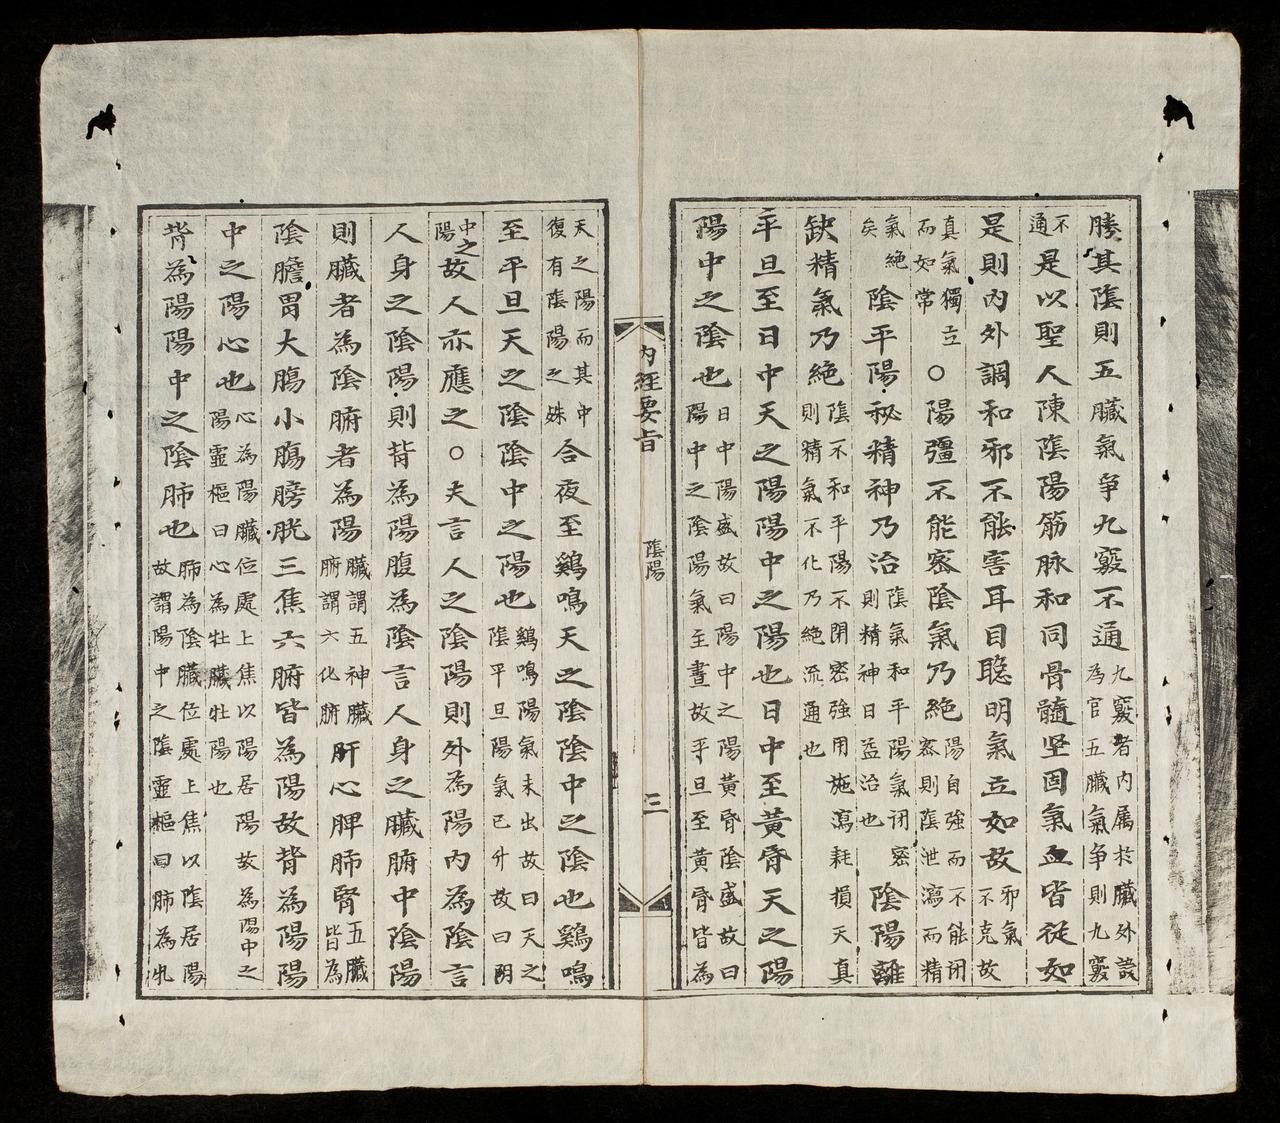 勝其陰則五臟氣爭九竅不通九竅者內属扵臟外設為官五臟氣争則九竅
不通是以聖人陳陰陽筋脉和同骨髓坚固氣血皆從如
是則內外調和邪不能害耳目聡明氣立如故邪氣不克故
真氣獨立而如常○陽彊不能密陰氣乃絕陽自強而不能闭密則陰泄瀉而精
氣絶矣陰平陽秘精神乃治陰氣和平陽氣闭密則精神日益治也陰陽離
缺精氣乃絕陰不和平陽不閉密強用施瀉耗損天真則精氣不化乃絶流通也
平旦至日中天之陽陽中之陽也日中至黄昏天之陽
陽中之陰也日中陽盛故曰陽中之陽黃昏陰盛故曰陽中之陰陽氣至晝故平旦至黄昏皆為
內經要旨 陰陽 三
天之陽而其中復有陰陽之姝合夜至鷄鳴天之陰陰中之陰也鷄鳴
至平旦天之陰陰中之陽也鷄鳴陽氣未出故曰天之陰平旦陽氣已升故曰阴
中之陽故人亦應之○夫言人之陰陽則外為陽內為陰言
人身之陰陽則背為陽腹為陰言人身之臟腑中陰陽
則臟者為陰腑者為陽臟謂五神臟腑謂六化腑肝心脾肺腎五臟皆為
陰膽胃大膓小膓膀胱三焦六腑皆為陽故背為陽陽
中之陽心也心為陽臟位處上焦以陽居陽故為陽中之陽靈樞曰心為牡臟牡陽也
背為陽陽中之陰肺也肺為陰臟位處上焦以陰居陽故謂陽中之陰靈樞曰肺為牝